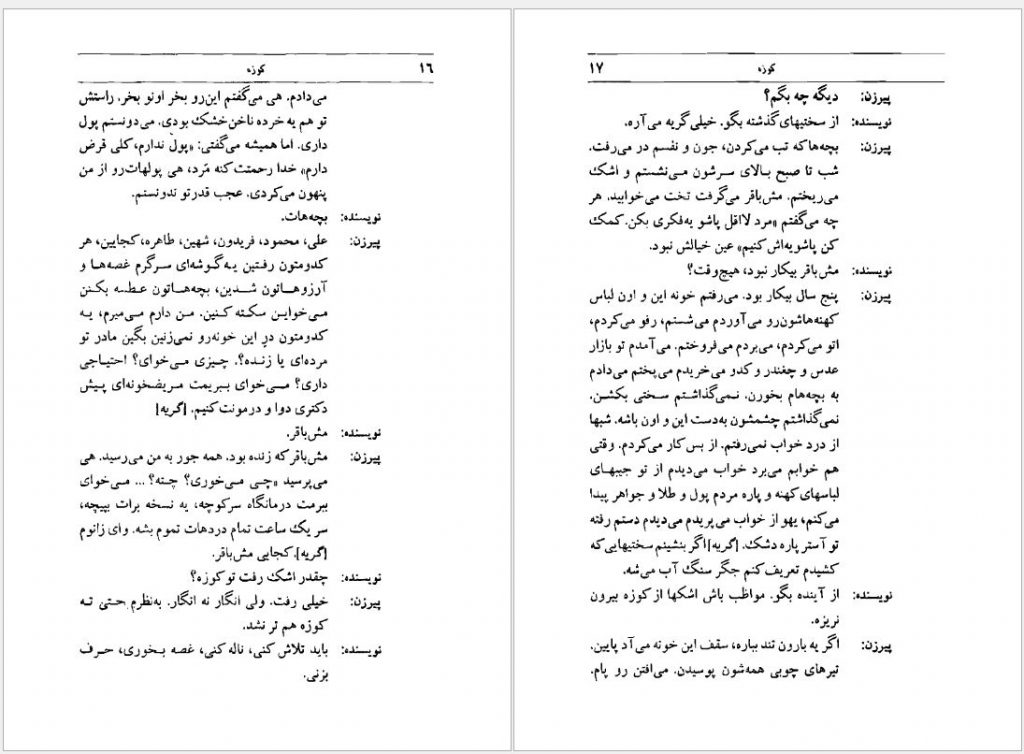 ۱۶ کوزه
می‌دادم. هی می‌گفتم این‌رو بخر اونو بخر. راستش
تو هم یه خرده ناخن‌خشک بودی. می‌دونستم پول
داری. اما همیشه می‌گفتی: «پول ندارم، کلی قرض
دارم» خدا رحمتت کنه مَرد، هی پولهات‌رو از من
پنهون می‌کردی. عجب قدرتو ندونستم.
نویسنده: بچه‌هات.
پیرزن: علی، محمود، فریدون، شهین، طاهره، کجایین، هر
کدومتون رفتین یه‌گوشه‌ای سرگرم غصه‌ها و
آرزوهاتون شدین، بچه‌هاتون عطسه بکنن
می‌خواین سکته کنین. من دارم می‌میرم، یه
کدومتون درِ این خونه‌رو نمی‌زنین بگین مادر تو
مرده‌ای یا زنده؟. چیزی می‌خوای؟ احتیاجی
داری؟ می‌خوای ببریمت مریضخونه‌ای پیش
دکتری دوا و درمونت کنیم. [گریه]
نویسنده: مش‌باقر.
پیرزن: مش‌باقر که زنده بود. همه جور به من می‌رسید. هی
می‌پرسید «چی می‌خوری؟ چته؟ ... می‌خوای
ببرمت درمانگاه سرکوچه، یه نسخه برات بپیچه،
سر یک ساعت تمام دردهات تموم بشه. وای زانوم
[گریه]. کجایی مش‌باقر.
نویسنده: چقدر اشک رفت تو کوزه؟
پیرزن: خیلی رفت. ولی انگار نه انگار. به‌نظرم حتی ته
کوزه هم تر نشد.
نویسنده: باید تلاش کنی، ناله کنی، غصه بخوری، حرف
بزنی.
۱۷ کوزه
پیرزن: دیگه چه بگم؟
نویسنده: از سختیهای گذشته بگو. خیلی گریه می‌آره.
پیرزن: بچه‌ها که تب می‌کردن، جون و نفسم در می‌رفت.
شب تا صبح بالای سرشون می‌نشستم و اشک
می‌ریختم. مش‌باقر می‌گرفت تخت می‌خوابید. هر
چه می‌گفتم «مرد لااقل پاشو یه‌فکری بکن. کمک
کن پاشویه‌اش کنیم» عین خیالش نبود.
نویسنده: مش‌باقر بیکار نبود، هیچ‌وقت؟
پیرزن: پنج سال بیکار بود. می‌رفتم خونه این و اون لباس
کهنه‌هاشون‌رو می‌آوردم می‌شستم، رفو می‌کردم،
اتو می‌کردم، می‌بردم می‌فروختم. می‌آمدم تو بازار
عدس و چغندر و کدو می‌خریدم می‌پختم می‌دادم
به بچه‌هام بخورن. نمی‌گذاشتم سختی بکشن.
نمی‌گذاشتم چشمشون به‌دست این و اون باشه. شبها
از درد خواب نمی‌رفتم. از بس کار می‌کردم. وقتی
هم خوابم می‌برد خواب می‌دیدم از تو جیبهای
لباسهای کهنه و پاره مردم پول و طلا و جواهر پیدا
می‌کنم، یهو از خواب می‌پریدم می‌دیدم دستم رفته
تو آستر پاره دشک. [گریه] اگر بنشینم سختیهایی که
کشیدم تعریف کنم جگر سنگ آب می‌شه.
نویسنده: از آینده بگو. مواظب باش اشکها از کوزه بیرون
نریزه.
پیرزن: اگر یه بارون تند بباره، سقف این خونه می‌آد پایین.
تیرهای چوبی همه‌شون پوسیدن. می‌افتن رو پام.